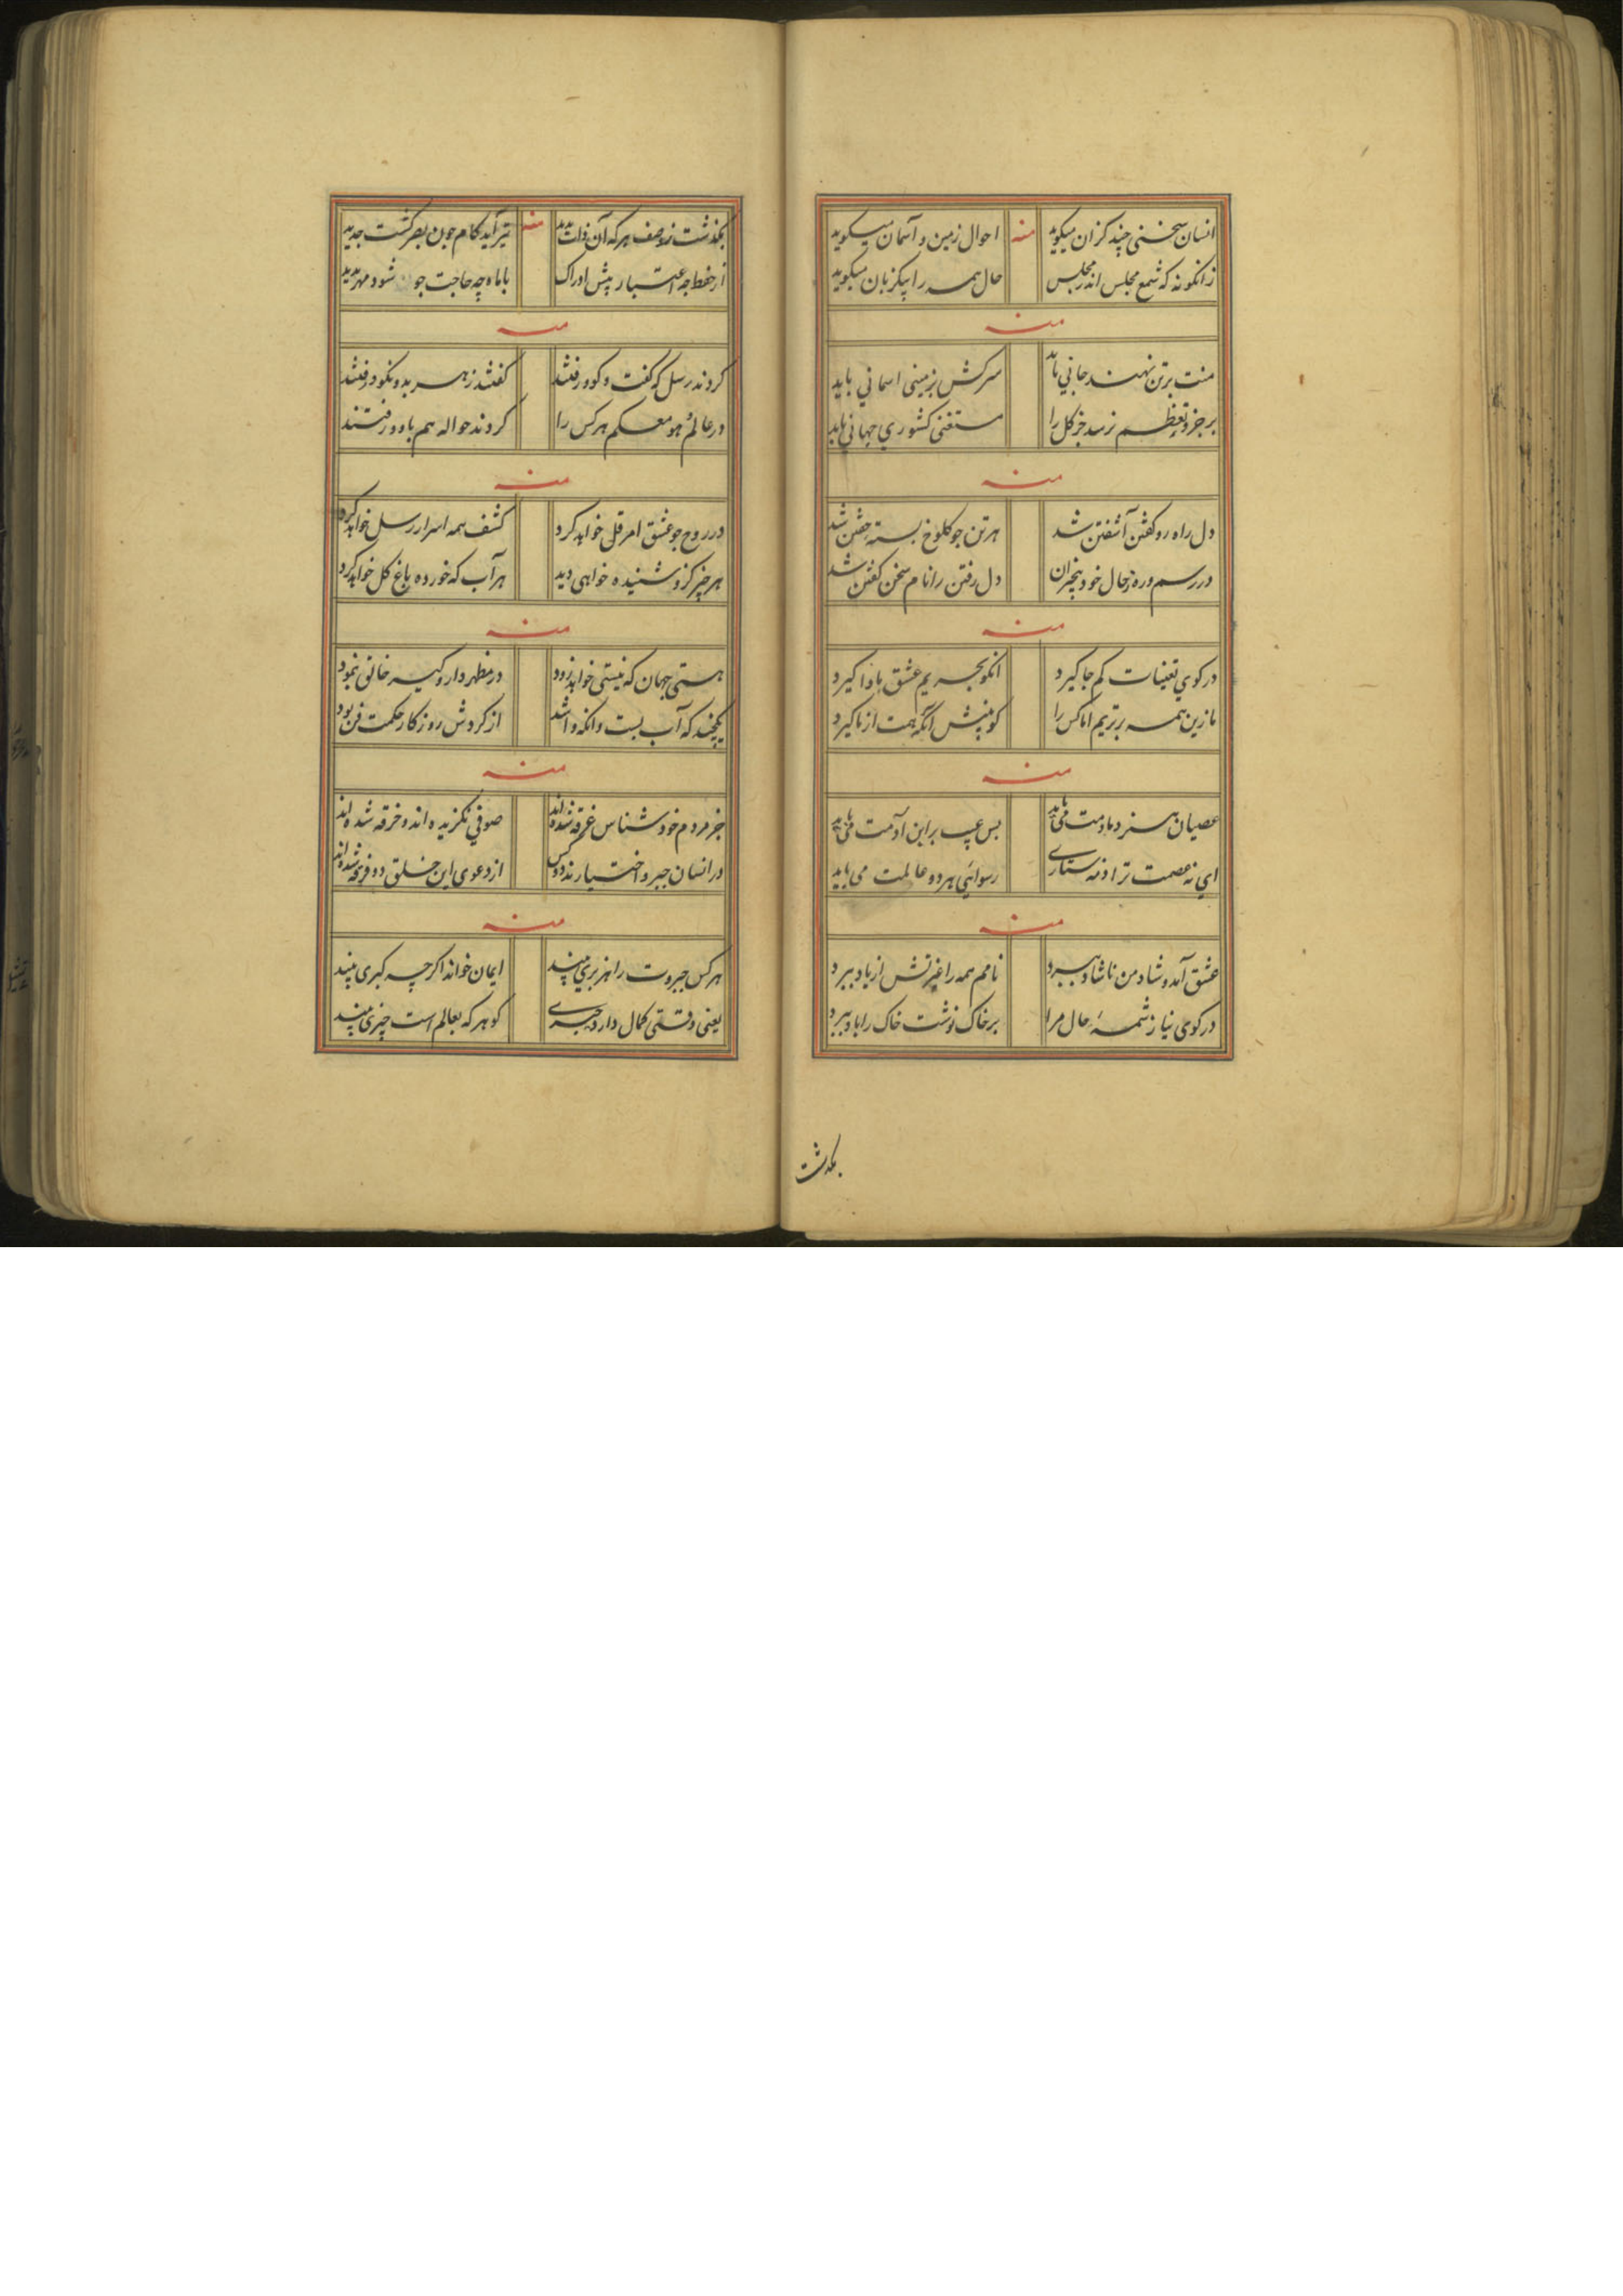 انسان سخنی چند کزان میکوید منه احوال زمین و آسمان میکوید
زانکونه که شمع مجلس اندر مجلس حال همه را بیکزبان میکوید
منه
منت برتن نهند جانی باید سرکش زمینی اسمانی باید
بر جزو تعظم نرسد جز کل را مستغنی کشوری جهانی باید
منه
دل راه رو کفتن آشفتن شد هرتن جو کلوخ بسته خفتن شد
در رسم وره زحال خود بیخبران دل رفتن را نام سخن کفتن شد
منه
در کوی تعینات کم جا کیرد انکو بحریم عشق ماوا کیرد
ما زین همه برتریم اما کس را کو بینش آنکه همت از ما کیرد
منه
عصیان هنر دمادمت می باید بس عیب براین آدمت می باید
ای نه عصمت ترا و نه ستاری رسوائی هر دو عالمت می باید
منه
عشق آمد و شاد من ناشاد ببرد نامم همه را غیرتش از یاد ببرد
در کوی نیاز شمهٔ حال مرا بر خاک نوشت خاک را باد ببرد
بکذشت
بکذشت ز وصف هر که آن ذات بدید منه تیر آید کام جون بصر کشت جدید
از خط چه اعتبار پیش ادراک با ماه چه حاجت جو شود مهر بدید
منه
کردند رسل که کفت و کو و رفتند کفتند زهر بد و نکو و رفتند
در عالم هو معکم هر کس را کردند حواله هم باو و رفتند
منه
در روح جو عشق امر قل خواهد کرد کشف همه اسرار رسل خواهد کرد
هر چیز کزو شنیده خواهی دید هر آب که خورده باغ کل خواهد کرد
منه
هستی جهان که نیستی خواهد زود در مظهر دار و کیر خالق بنمود
یکچند که آب بست وانکه وا شد از کردش روزکار حکمت فن بود
منه
جز مردم خود شناس غرقه شده اند صوفی نکزیده اند و خرقه شده اند
در انسان جبر و اختیارند دو کس از دعوی این خلق دو فرقه شده اند
منه
هر کس جبروت را هزبری بیند ایمان خواند اکرچه کبری بیند
یعنی وقتی کمال دارد جبری کو هر که بعالم است جبری بیند